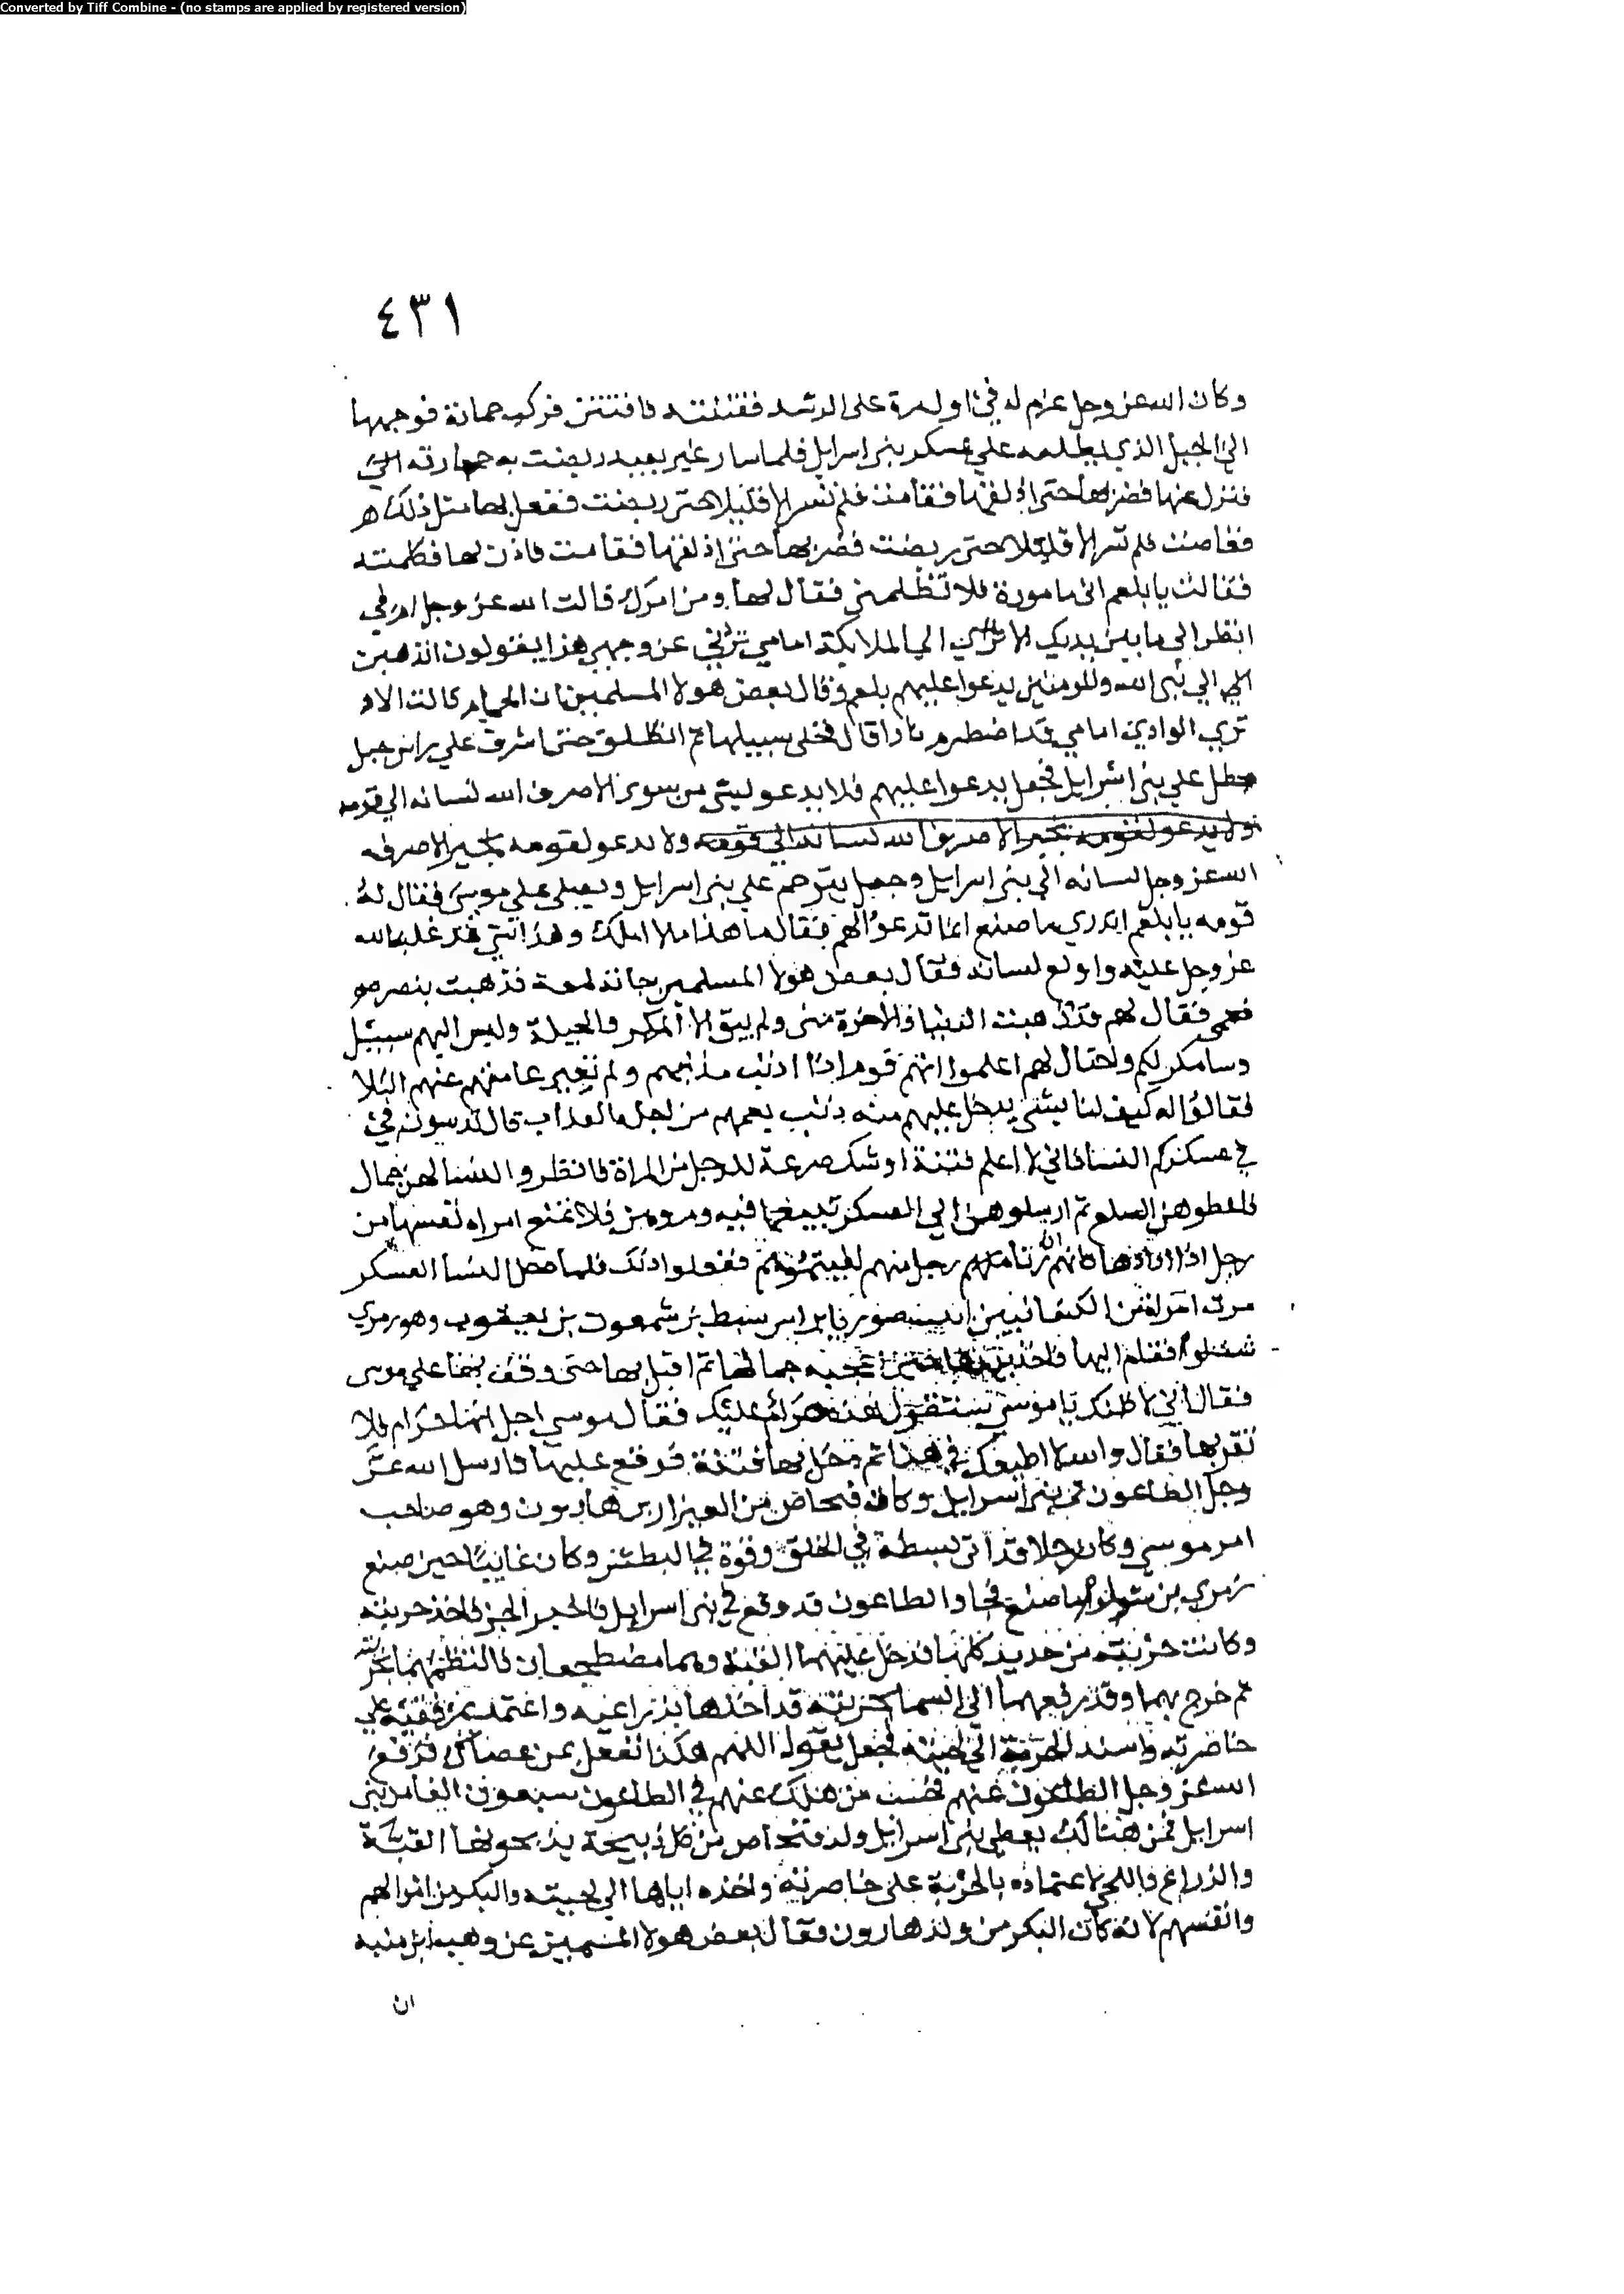 Converted by Tiff Combine - (no stamps are applied by registered version)
٤٣١
وكان الله عز وجل عزم له في اول مرة على الرشد ففتنته فافتتن فركب حمارة فوجهها
الى الجبل الذي يطلعه علي عسكر بني اسرايل فلما سار غير بعيد ربضت به حمارته
فنزل عنها فضربها حتى اذلقها فقامت فلم تسر الا قليلا حتى ربضت ففعل بها مثل ذلك
فقامت فلم تسر الا قليلا حتى ربضت فضربها حتى اذلقها فقامت فاذن لها فكلمته
فقالت يا بلعم انى مامورة فلا تظلمني فقال لها ومن امرك قالت الله عز وجل امرني
انظر الى ما بين يديك الا ترى الي الملايكة امامي تردني عن وجهي هذا يقولون اتذهبين
الي نبي الله والمومنين يدعوا عليهم بلعم وقال بعض هولا المسلمين ان الحمارة قالت الا
تري الوادي امامي قد اضطرم نارا قال فخلى سبيلها ثم انطلق حتى اشرف علي راس جبل
مطل علي بني اسرايل فجعل يدعوا عليهم فلا يدعو بشي من سوء الا صرف الله لسانه الي قومه
ولا يدعو لقومه بخير الا صرف الله لسانه الي قومه ولا يدعو لقومه بخير الا صرف
الله عز وجل لسانه الي بني اسرايل وجعل يترحم علي بني اسرايل ويصلى على موسى فقال له
قومه يا بلعم اتدري ما صنع انما تدعوا لهم فقال ما هذا ما لا املك وهذا شي قد غلب الله
عز وجل عليه واولع لسانه فقال بعض هولا المسلمين جاته لمعة فذهبت ببصره
فعمى فقال لهم قد ذهبت الدنيا والاخرة مني ولم يبق الا المكر والحيلة وليس اليهم سبيل
وسامكر لكم واحتال لهم اعلموا انهم قوم اذا اذنب مذنبهم ولم تغير عامتهم عنهم البلا
فقالوا له كيف لنا بشي يدخل عليهم منه ذنب يعمهم من اجله العذاب قال تدسون في
في عسكركم النسا فاني لا اعلم فتنة اوشك صرعة للرجل من المراة فانظروا النسا لهن جمال
فاعطوهن السلع ثم ارسلوهن الي العسكر تبيعها فيه ومروهن فلا تمنع امراه نفسها من
رجل اذا ارادها فانهم ان زنا منهم رجل منهم كفيتموهم ففعلوا ذلك فلما دخل النسا العسكر
مرت امراة من الكنعانيين براس سبط بن شمعون بن يعقوب وهو زمري
شلوا فقام اليها فاخذ بيدها حين اعجبه جمالها ثم اقبل بها حتى وقف بها علي موسى
فقال اني لاظنك يا موسي ستقول هذه حرام عليك فقال موسي اجل انها حرام فلا
تقربها فقال والله لا اطيعك في هذا ثم دخل بها قبته فوقع عليها فارسل الله عز
وجل الطاعون في بني اسرايل وكان فنحاص بن العيزار بن هارون وهو صاحب
امر موسي وكان رجلا قد اتى بسطة في الخلق وقوة في البطش وكان غايبا حين صنع
زمري بن شلوا ما صنع فجا والطاعون قد وقع في بني اسرايل فاخبر الخبر فاخذ حربته
وكانت حربته من حديد كلها فدخل عليهما القبة وهما مضطجعان فانتظمهما بحربته
ثم خرج بهما وقد رفعهما الى السما بحربته قد اخذها بذراعيه واعتمد بمرفقيه علي
خاصرته واسند الحربة الي لحيته فجعل يقول اللهم هكذا نفعل بمن عصاك فرفع
الله عز وجل الطاعون عنهم فحسب من هلك عنهم في الطاعون سبعون الفا من بني
اسرايل فمن هنالك يعطي بني اسرايل ولد فنحاص من كل ذبيحة يذبحونها القبة
والذراع واللحي لاعتماده بالحربة على خاصرته واخذه اياها الي لحيته والبكر من اموالهم
وانفسهم لانه كان البكر من ولد هارون فقال بعض هولا المسلمين عن وهب ابن منبه
ان